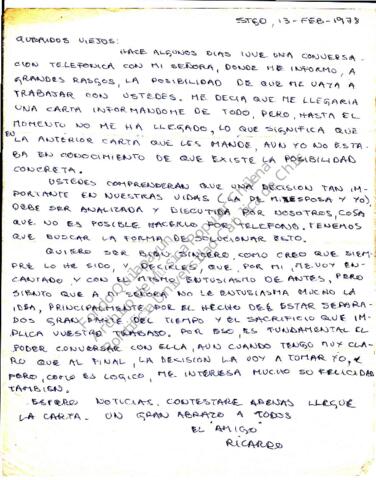 STGO, 13-FEB-1978
QUERIDOS VIEJOS:
HACE ALGUNOS DIAS TUVE UNA CONVERSA
CION TELEFONICA CON MI SEÑORA, DONDE ME INFORMO, A
GRANDES RASGOS, LA POSIBILIDAD DE QUE ME VAYA A
TRABAJAR CON USTEDES. ME DECIA QUE ME LLEGARIA
UNA CARTA INFORMANDOME DE TODO, PERO, HASTA EL
MOMENTO NO ME HA LLEGADO, LO QUE SIGNIFICA QUE
EN LA ANTERIOR CARTA QUE LES MANDE, AUN YO NO ESTA
BA EN CONOCIMIENTO DE QUE EXISTE LA POSIBILIDAD
CONCRETA.
USTEDES COMPRENDERAN QUE UNA DECISION TAN IM
PORTANTE EN NUESTRAS VIDAS (LA DE MI ESPOSA Y YO),
DEBE SER ANALIZADA Y DISCUTIDA POR NOSOTROS, COSA
QUE NO ES POSIBLE HACERLO POR TELEFONO. TENEMOS
QUE BUSCAR LA FORMA DE SOLUCIONAR ESTO.
QUIERO SER BIEN SINCERO, COMO CREO QUE SIEM
PRE LO HE SIDO, Y DECIRLES, QUE, POR MI, ME VOY EN
CANTADO Y CON EL MISMO ENTUSIASMO DE ANTES, PERO
SIENTO QUE A MI SEÑORA NO LE ENTUSIASMA MUCHO LA
IDEA, PRINCIPALMENTE POR EL HECHO DE ESTAR SEPARA
DOS GRAN PARTE DEL TIEMPO Y EL SACRIFICIO QUE IM
PLICA VUESTRO TRABAJO, POR ESO, ES FUNDAMENTAL EL
PODER CONVERSAR CON ELLA, AUN CUANDO TENGO MUY CLA
RO QUE AL FINAL, LA DECISION LA VOY A TOMAR YO,
PERO, COMO ES LOGICO, ME INTERESA MUCHO SU FELICIDAD
TAMBIEN.
ESPERO NOTICIAS. CONTESTARE APENAS LLEGUE
LA CARTA. UN GRAN ABRAZO A TODOS
EL AMIGO
RICARDO